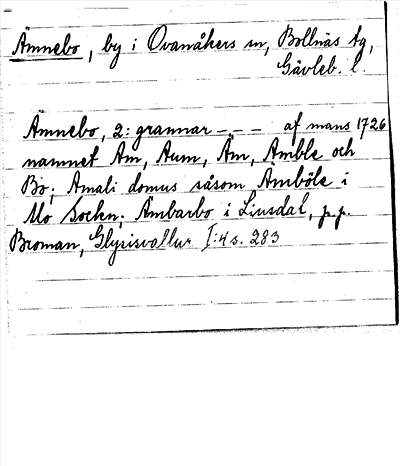 Ämnebo, by i Ovanåkers sn, Bollnäs tg,
Gävleb. l.
Ämnebo, 2: grannar --- af mans 1726
namnet Am, Aum, Äm, Ämble och
Bo; Amali domus såsom Amböle i
Mo Sockn; Ämbarbo i Liusdal, p.p.
Broman, Glysisvallur I:4 s. 283